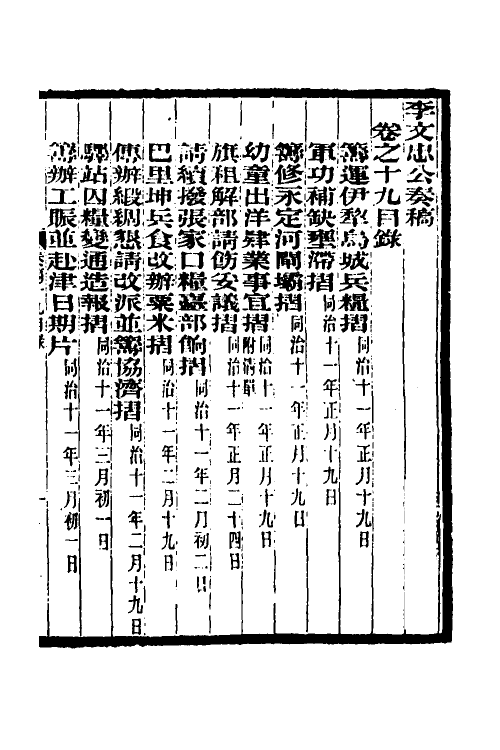 李文忠公奏稿
卷之十九目錄
籌運伊犂烏城兵糧摺同治十一年正月十九日
軍功補缺壅滯摺同治十一年正月十九日
籌修永定河閘壩摺同治十一年正月十九日
幼童出洋肄業事宜摺附清單同治十一年正月十九日
旗租解部請飭妥議摺同治十一年正月二十四日
請續撥張家口糧臺部餉摺同治十一年二月初二日
巴里坤兵食改辦粟米摺同治十一年二月十九日
傳辦緞綢懇請改派並籌協濟摺同治十一年二月十九日
驛站囚糧變通造報摺同治十一年三月初一日
籌辦工賑並赴津日期片同治十一年三月初一日